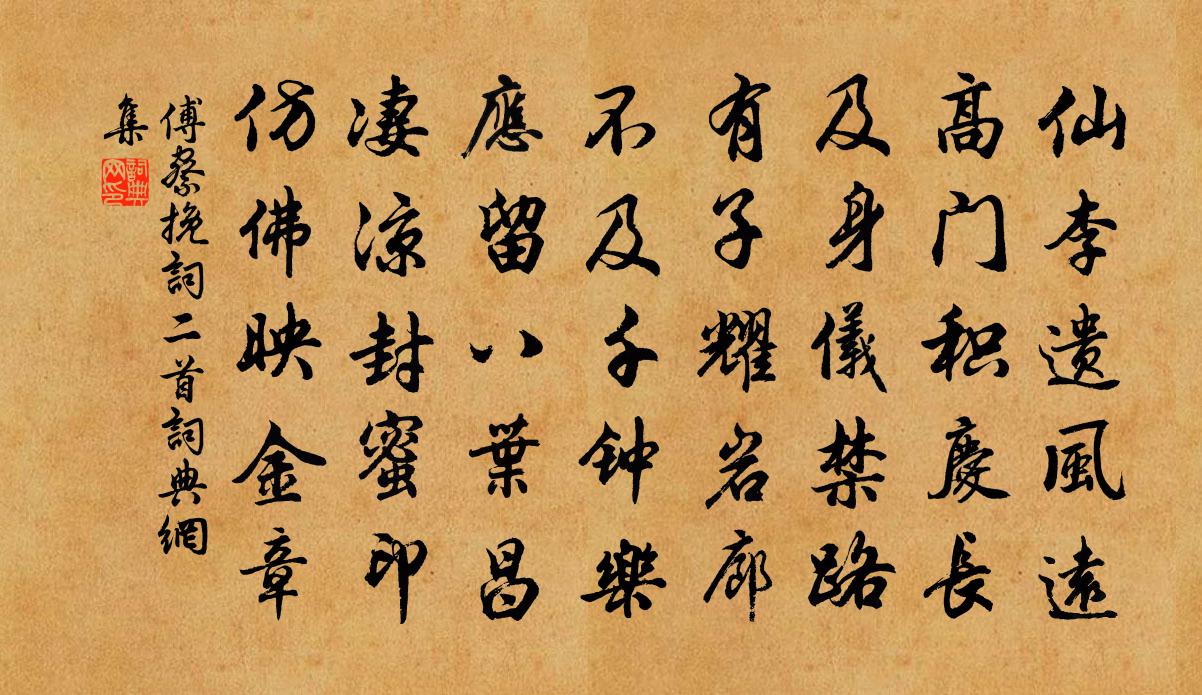 仙李遗風遠
髙门积慶長
及身儀禁路
有子耀岩廊
不及千钟樂
應留八葉昌
凄凉封蜜印
仿佛映金章
傅察挽詞二首詞典網
集
詞典
网印